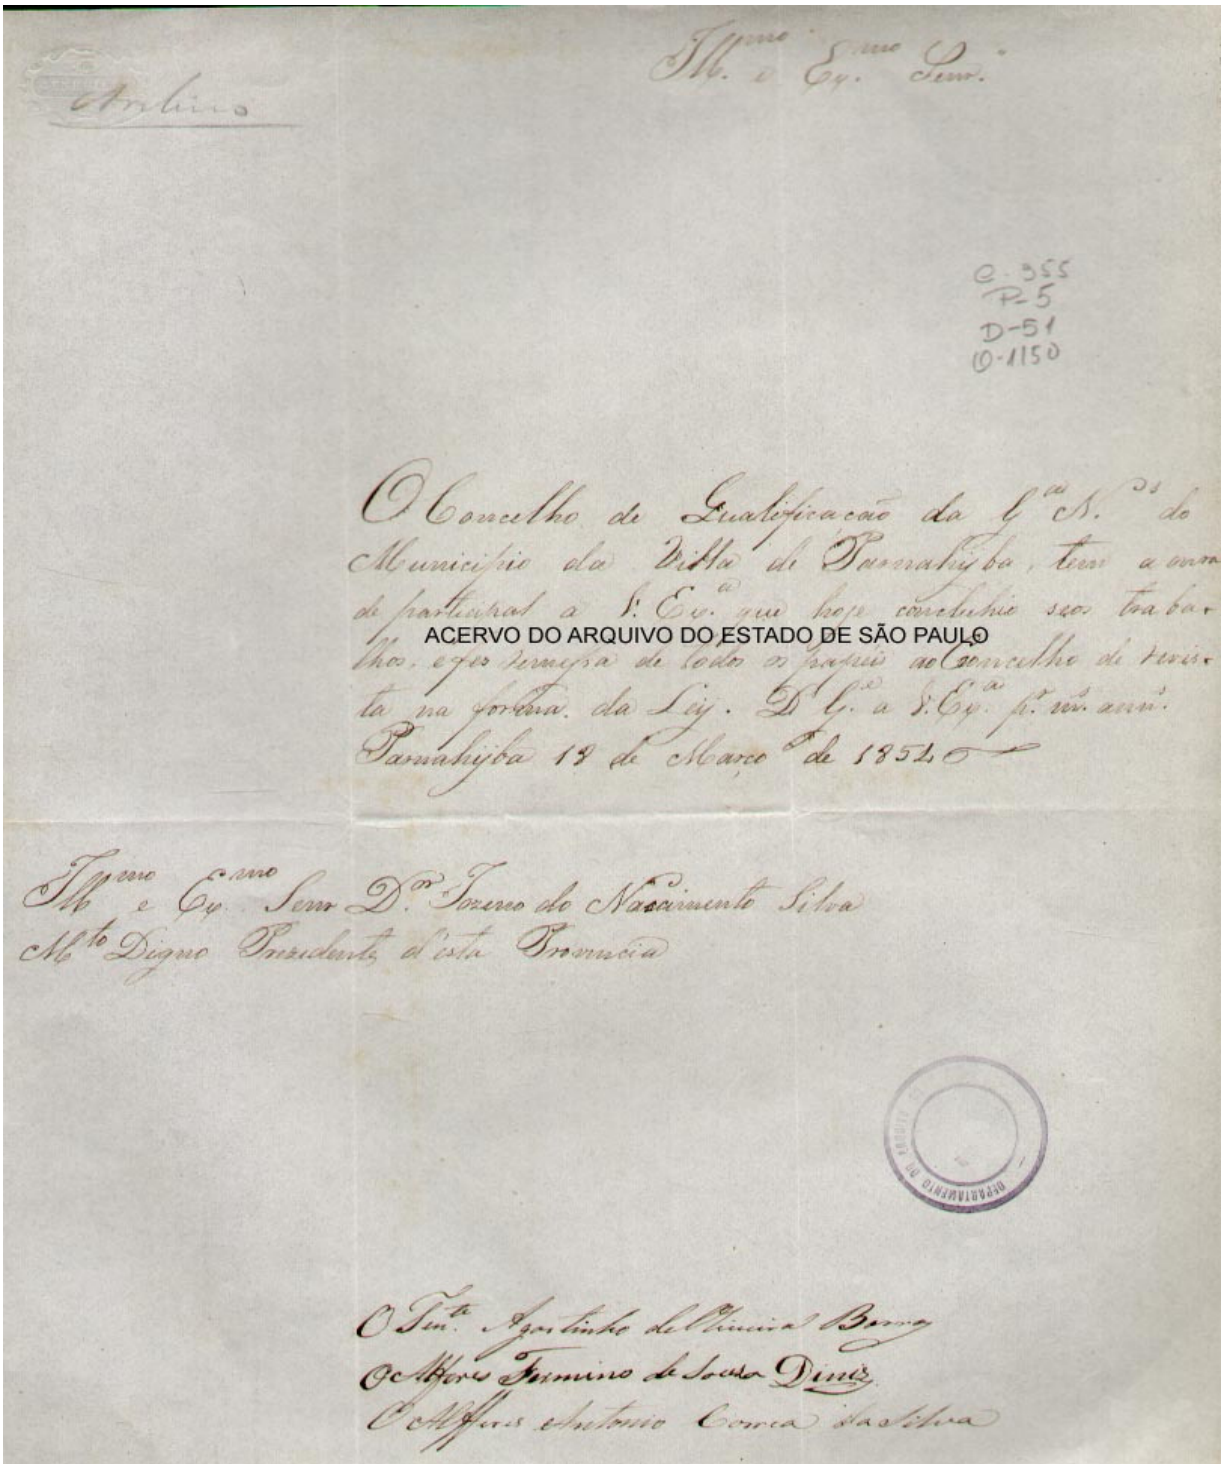 Ill.mo e Ex.mo Senr.
Archivo
C-355
P-5
D-51
O-1150
O Concelho de Qualificação da G.a N.al do
Municipio da Villa de Parnahyba, tem a onra
de participal a V. Ex.a que hoje concluhio seos traba-
ACERVO DO ARQUIVO DO ESTADO DE SÃO PAULO
lhos, e fes remessa de todos os papeis ao Concelho de revis-
ta na forma da Ley. D.s G.e a V. Ex.a p.r m.s ann.s
Parnahyba 18 de Março de 1852
Ill.mo e Ex.mo Senr D.or Jozeno do Nascimento Silva
M.to Digno Prezidente d'esta Provincia
DEPARTAMENTO DO ARQUIVO DO
O Ten.te Agostinho de Oliveira Barros
O Alferes Fermino de Souza Diniz
O Alfferes Antonio Correa da Silva